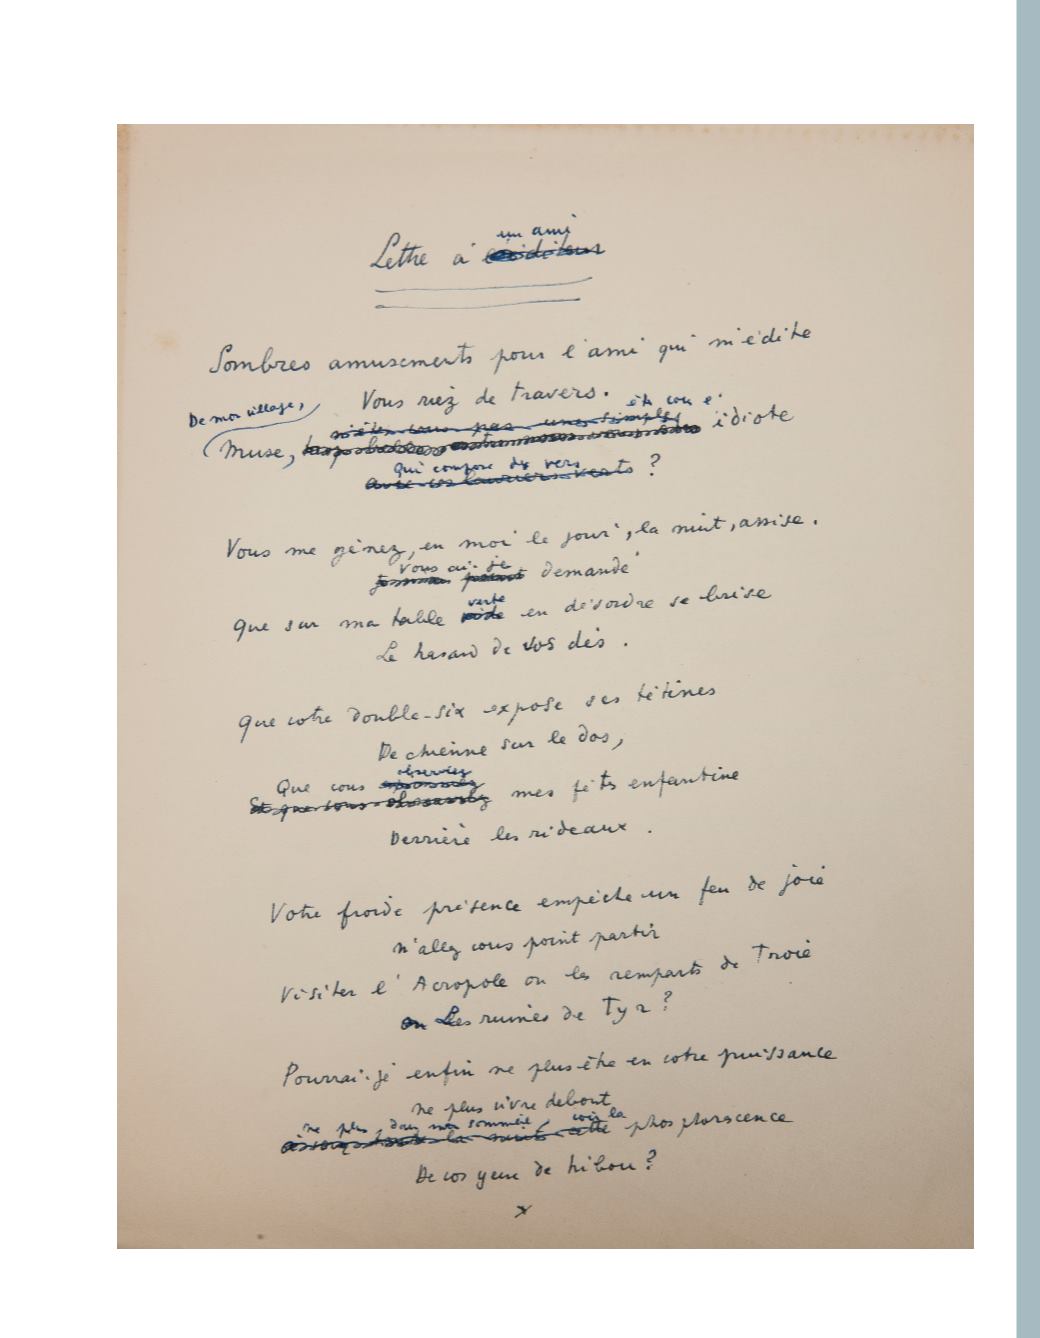 un ami
Lettre à l'éditeur
Sombres amusements pour l'ami qui m'édite
Vous riez de travers.
De mon village, êtes vous l'
n'êtes vous pas une simple
Muse, idiote
Qui compose des vers
avec ces lauriers verts ?
Vous me gênez, en moi le jour, la nuit, assise.
Vous ai-je
point demandé
verte
Que sur ma table vide en désordre se brise
Le hasard de vos dés.
Que votre double-six expose ses tétines
De chienne sur le dos,
observiez
Que vous
Et que vous observiez mes fêtes enfantine
Derrière les rideaux.
Votre froide présence empêche un feu de joie
N'allez vous point partir
Visiter l'Acropole ou les remparts de Troie
ou Les ruines de Tyr ?
Pourrai-je enfin ne plus être en votre puissance
Ne plus vivre debout
ne plus, dans mon sommeil, voir la
la nuit cette phosphorescence
De vos yeux de hibou ?
x